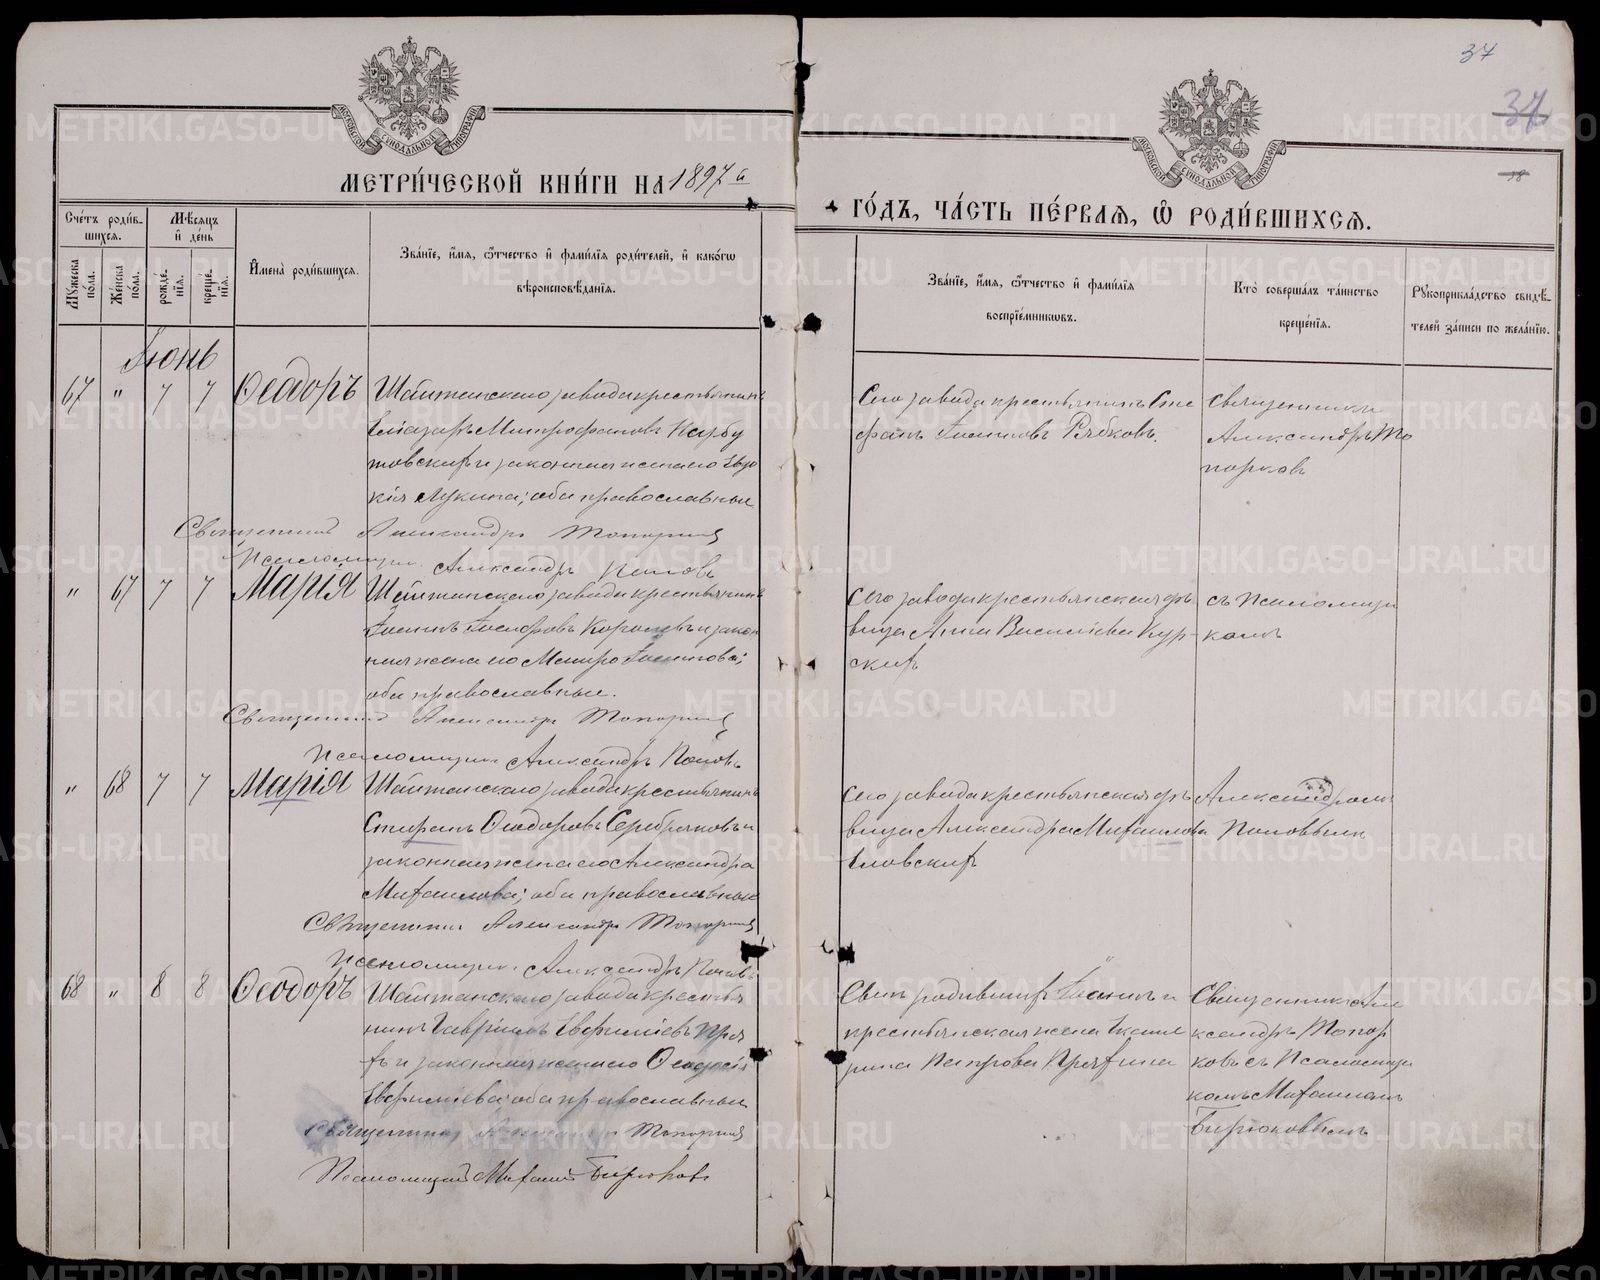 37
37
38
МОСКОВСКОЙ СѴНОДАЛЬНОЙ ТИПОГРАФІИ
МОСКОВСКОЙ СѴНОДАЛЬНОЙ ТИПОГРАФІИ
МЕТРИ́ЧЕСКОЙ КНИ́ГИ НА 1897 й
ГО́ДЪ, ЧА́СТЬ ПЕ́РВАЯ, Ѽ РОДИ́ВШИХСЯ.
Сче́тъ роди́в-
шихся.
Мѣ́сяцъ
и҆ де́нь
Му́жеска по́ла.
Же́нска по́ла.
рожде́нїя.
креще́нїя.
И҆мена̀ роди́вшихся.
Зва́нїе, и҆́мя, ѻ҆́тчество и҆ фами́лїя роди́телей, и҆ како́гѡ
вѣроисповѣ́данїя.
Зва́нїе, и҆́мя, ѻ҆́тчество и҆ фами́лїя
воспрїе́мникѡвъ.
Кто̀ соверша́лъ та́инство
креще́нїя.
Рꙋкоприкла́дство свидѣ́-
телей за́писи по жела́нїю.
Іюнь
67 " 7 7 Ѳеодоръ Шайтанскаго завода крестьянинъ
Елiазаръ Митрофановъ Карбу
товскихъ и законная жена его Евдо
кія Лукина; оба православные
Сего завода крестьянинъ Сте
фанъ Іоанновъ Рябковъ.
Священникъ
Александръ То
порковъ
Священникъ Александръ Топорковъ
Псаломщикъ Александръ Поповъ
" 67 7 7 Марія Шайтанскаго завода крестьянинъ
Іоаннъ Іосифовъ Королевъ и закон
ная жена его Мавра Іоаннова;
оба православные.
Сего завода крестьянская дѣ
вица Анна Васильева Кур-
скихъ
съ Псаломщи
комъ
Священникъ Александръ Топорковъ
Псаломщикъ Александръ Поповъ
" 68 7 7 Марія Шайтанскаго завода крестьянинъ
Стефанъ Ѳеодоровъ Серебряковъ и
законная жена его Александра
Михаилова; оба православные
Сего завода крестьянская дѣ
вица Александра Михаилова
Еловскихъ
Александромъ
Поповымъ
Священникъ Александръ Топорковъ
Псаломщикъ Александръ Поповъ
68 " 8 8 Ѳеодоръ Шайтанскаго завода крестья
нинъ Гавріилъ Евфиміевъ Пря
хъ и законная жена его Ѳеодосія
Евфиміева; оба православные
Сынъ родившихъ Іоаннъ и
крестьянская жена Екате
рина Петрова Пряхина
Священникъ Але
ксандръ Топор
ковъ съ Псаломщи
комъ Михаиломъ
Бирюковымъ
Священникъ Александръ Топорковъ
Псаломщикъ Михаилъ Бирюковъ
METRIKI.GASO-URAL.RU